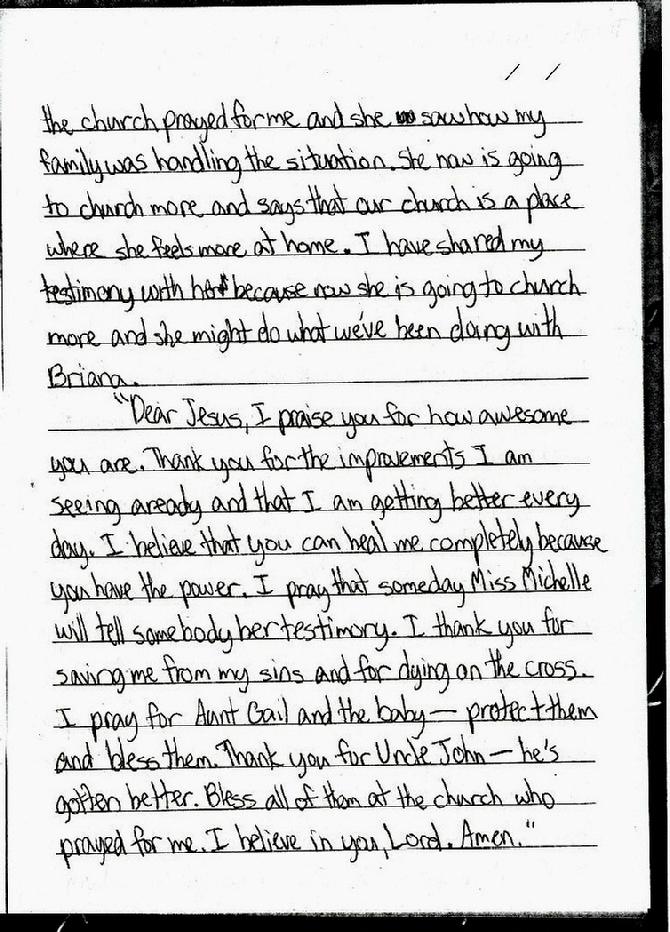 the church prayed for me and she saw how my
family was handling the situation. She now is going
to church more and says that our church is a place
where she feels more at home. I have shared my
testimony with her because now she is going to church
more and she might do what we've been doing with
Briana.
"Dear Jesus, I praise you for how awesome
you are. Thank you for the improvements I am
seeing aready and that I am getting better every
day. I believe that you can heal me completely because
you have the power. I pray that someday Miss Michelle
will tell somebody her testimony. I thank you for
saving me from my sins and for dying on the cross.
I pray for Aunt Gail and the baby — protect them
and bless them. Thank you for Uncle John — he's
gotten better. Bless all of them at the church who
prayed for me. I believe in you, Lord. Amen."